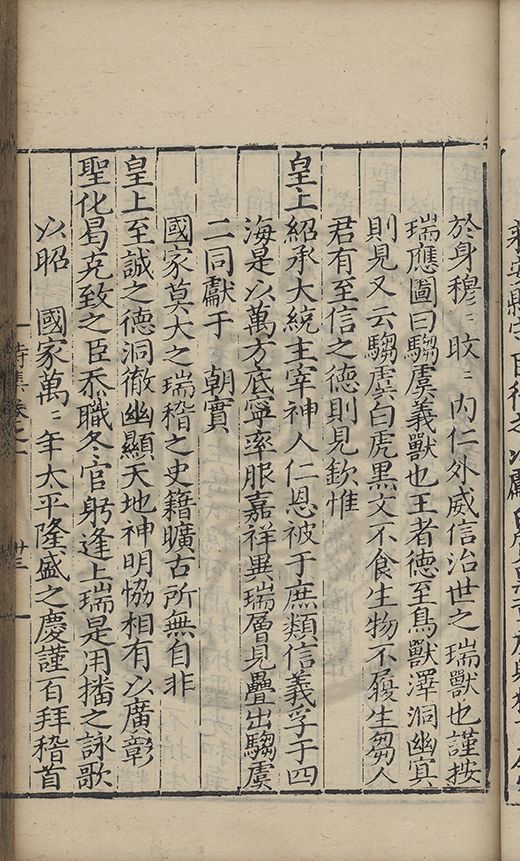 於身穆〻旼〻内仁外威信治世之瑞獸也謹按
瑞應圖曰騶虞義獸也王者德至鳥獸澤洞幽冥
則見又云騶虞白虎黑文不食生物不履生芻人
君有至信之德則見欽惟
皇上紹承大統主宰神人仁恩被于庶類信義孚于四
海是以萬方底寧率服嘉祥異瑞層見疊出騶虞
二同獻于 朝實
國家莫大之瑞稽之史籍曠古所無自非
皇上至誠之德洞徹幽顯天地神明恊相有以廣彰
聖化曷克致之臣忝職冬官躬逢上瑞是用播之詠歌
以昭 國家萬〻年太平隆盛之慶謹百拜稽首